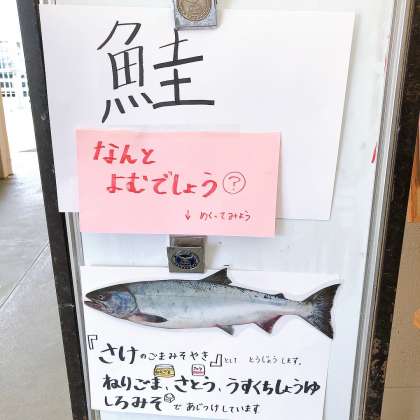 鮭
なんと
よむでしょう?
↓ めくってみよう
『さけのごまみそやき』として とうじょうします。
ねりごま、さとう、うすくちしょうゆ
しろみそであじつけしています